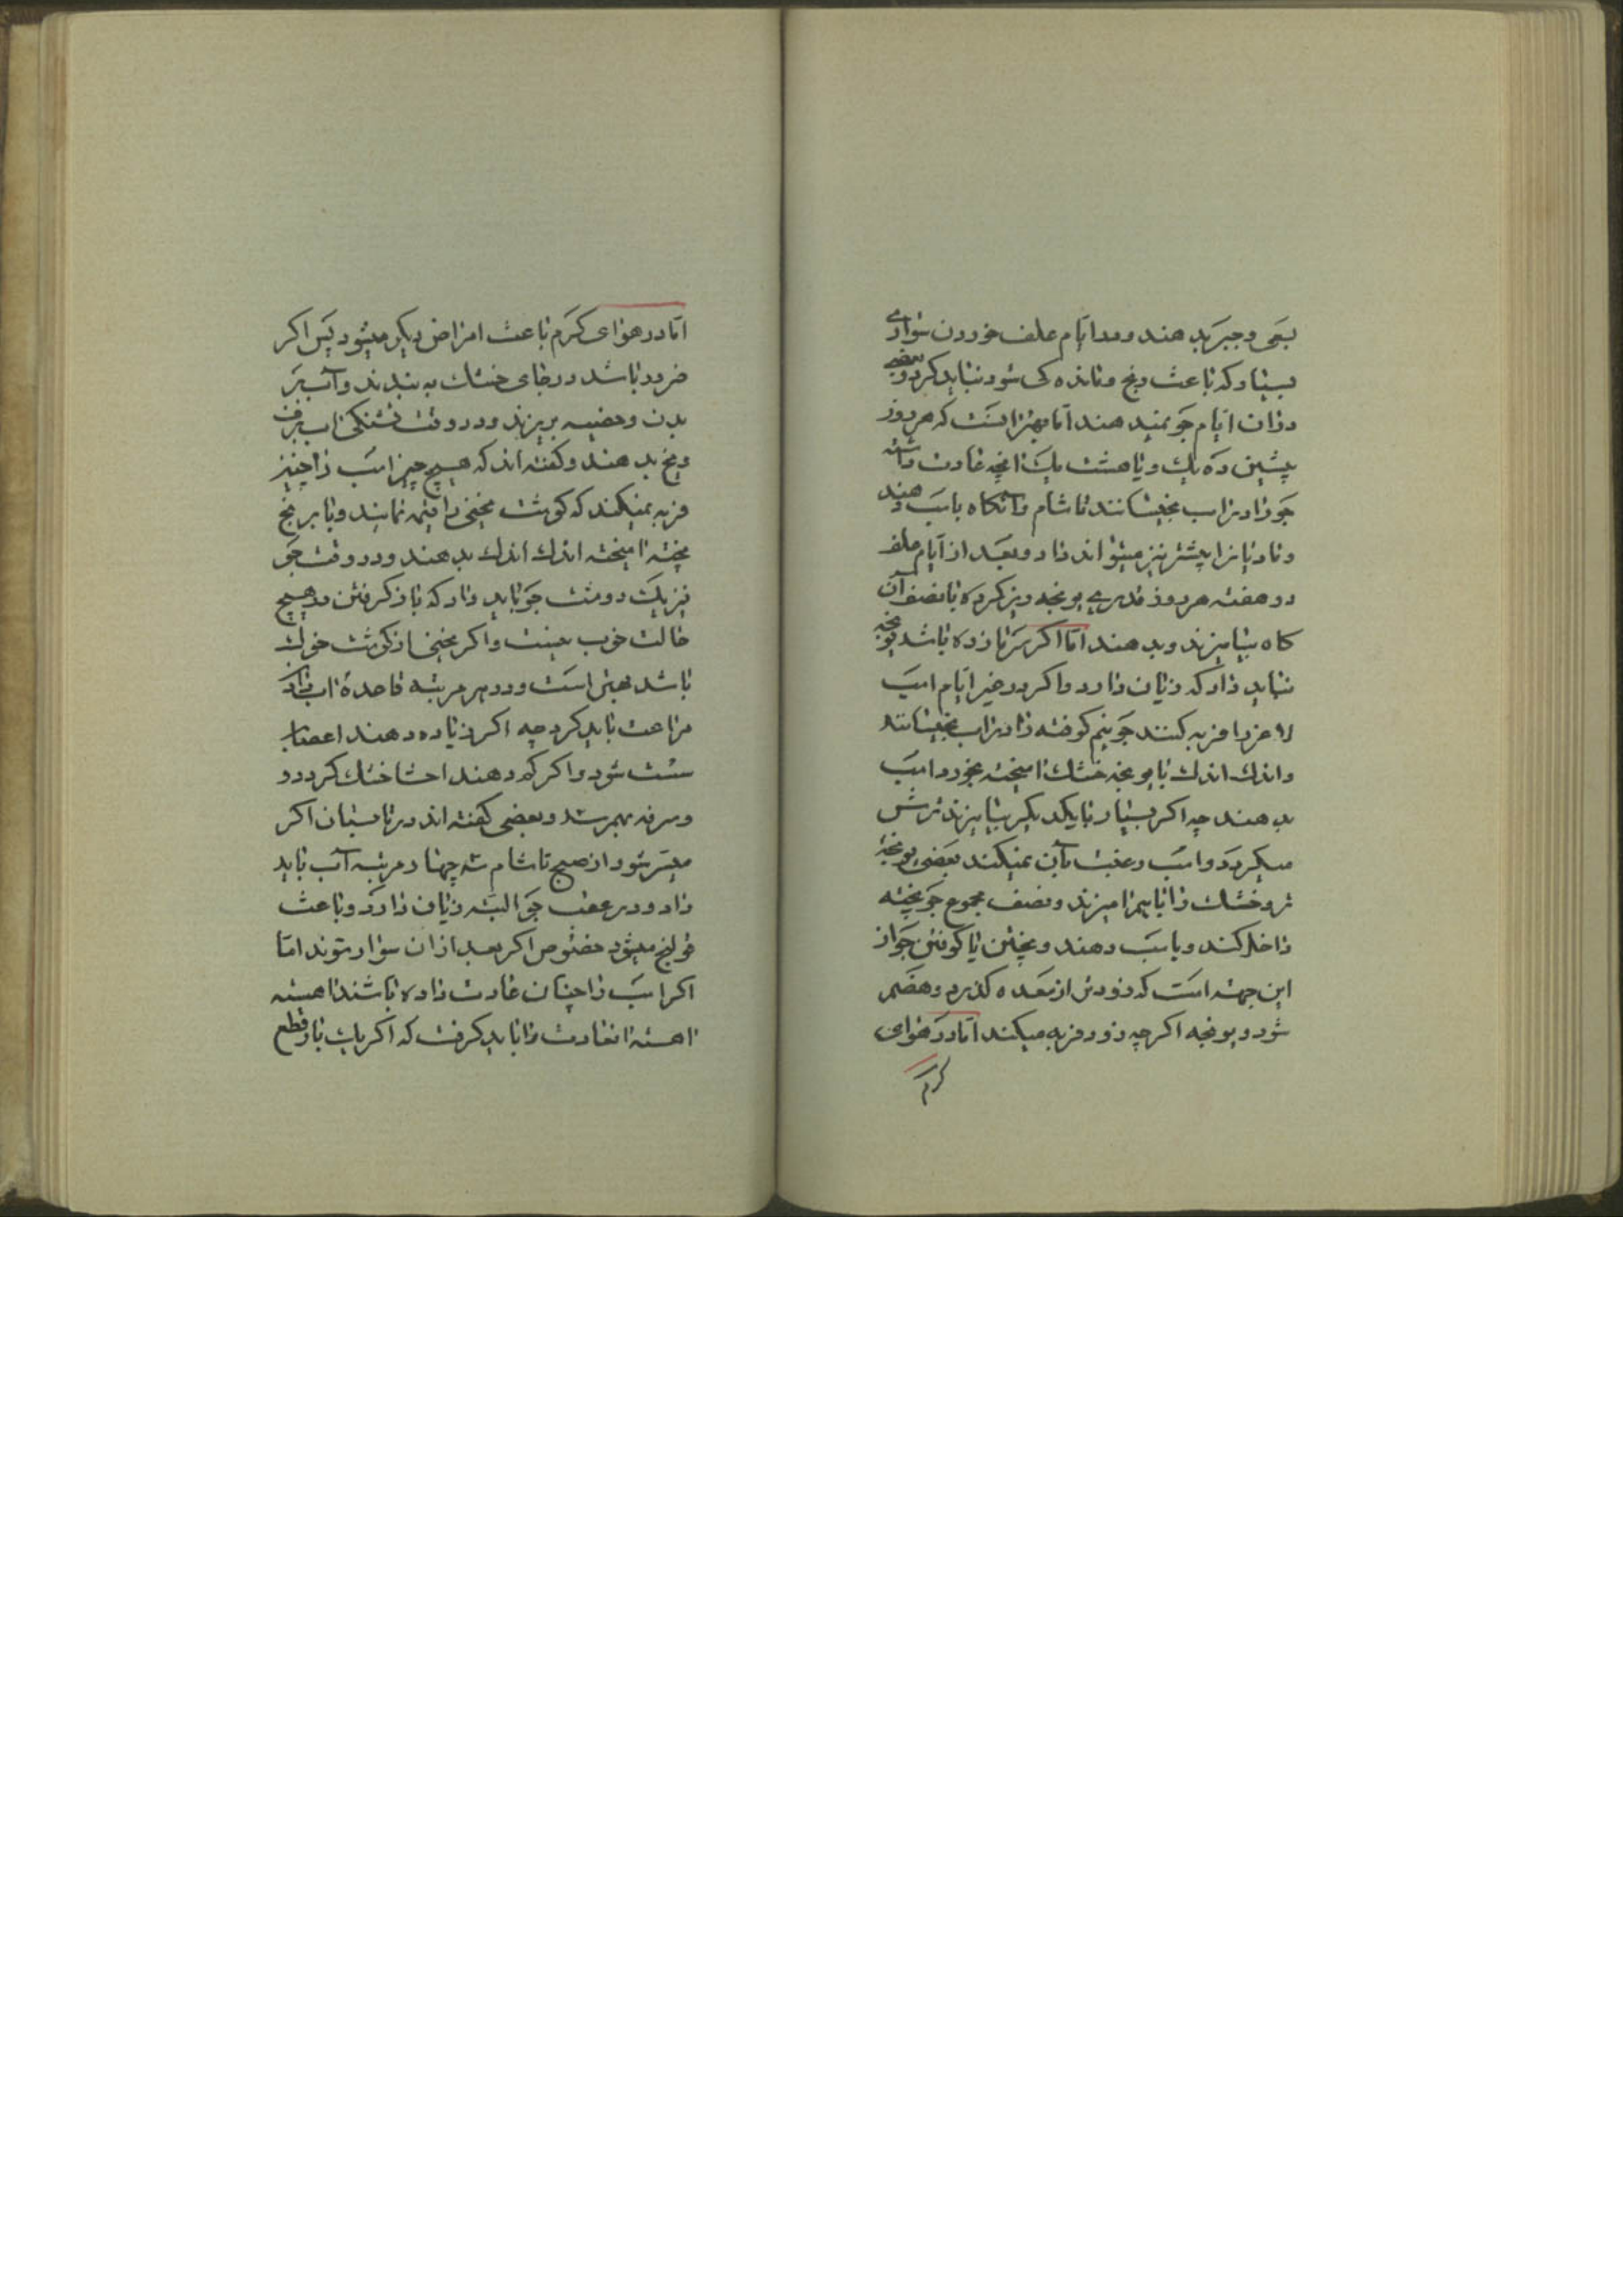 بعی و جبر بدهند و در ایام علف خوردن سواری
بسیار که باعث رنج و مانده کی شود نباید کرد و بعضی
در آن ایام جو نمیدهند اما بهتر آنست که هر روز
پیشین ده یك و یا هشت یك آنچه عادت داشته
جو را در آب بخیسانند تا شام و آنگاه باسب دهند
و مادیانرا بیشتر نیز میتواند داد و بعد از ایام علف
دو هفته هر روز قدری یونجه ریز کرده با نصف آن
کاه بیامیزند و بدهند اما اگر سرما زده باشد یونجه
نباید داد که زیان دارد و اگر در غیر ایام اسب
لاغر را فربه کنند جو نیم کوفته را در آب بخیسانند
و اندك اندك با یونجه خشك آمیخته بخورد اسب
بدهند چه اگر بسیار با یکدیگر بیامیزند ترش
میگردد و اسب رغبت بآن نمیکند بعضی یونجه
تر و خشك را با هم آمیزند و نصف مجموع جو پخته
داخل کنند و باسب دهند و پختن یا کوفتن جو از
این جهت است که زودتر از معده گذرد و هضم
شود و یونجه اگرچه زود فربه میکند اما در هوای
گرم
اما در هوای گرم باعث امراض دیگر میشود پس اگر
ضرور باشد در جای خنك به بندند و آب بر
بدن و خصیه بریزند و در وقت تشنگی آب برف
و یخ بدهند و گفته اند که هیچ چیز اسب را چنین
فربه نمیکند که گوشت یخنی را قیمه نمایند و با برنج
پخته آمیخته اندك اندك بدهند و در وقت جو
نیز یك دو مشت جو باید داد که باز گرفتن در هیچ
حالت خوب نیست و اگر یخنی از گوشت خوك
باشد بهتر است و در هر مرتبه قاعده آب دادن
مراعت باید کرد چه اگر زیاده دهند اعصاب
سست شود و اگر کم دهند احشا خشك گردد و
و سرفه بهم رسد و بعضی گفته اند در تابستان اگر
میسر شود از صبح تا شام سه چهار مرتبه آب باید
داد و در عقب جو البته زیان دارد و باعث
قولنج میشود خصوص اگر بعد از آن سوار شوند اما
اگر اسب را چنان عادت داده باشند آهسته
آهسته آنعادت را باید گرفت که اگر یك بار قطع